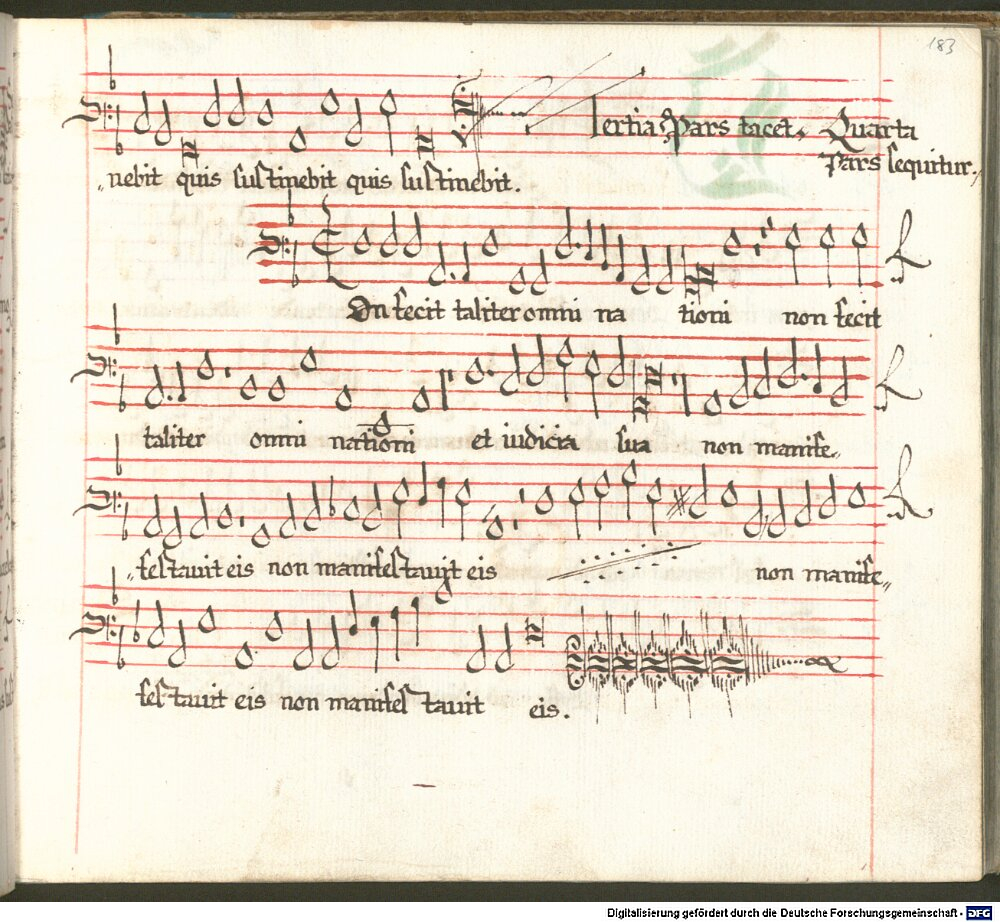 183
Tertia Pars tacet. Quarta
Pars sequitur.
nebit quis sustinebit quis sustinebit.
On fecit taliter omni na tioni non fecit
taliter omni nationi et iudicia sua non manife
festauit eis non manifestauit eis non manife
festauit eis non manifes tauit eis.
Digitalisierung gefördert durch die Deutsche Forschungsgemeinschaft - DFG